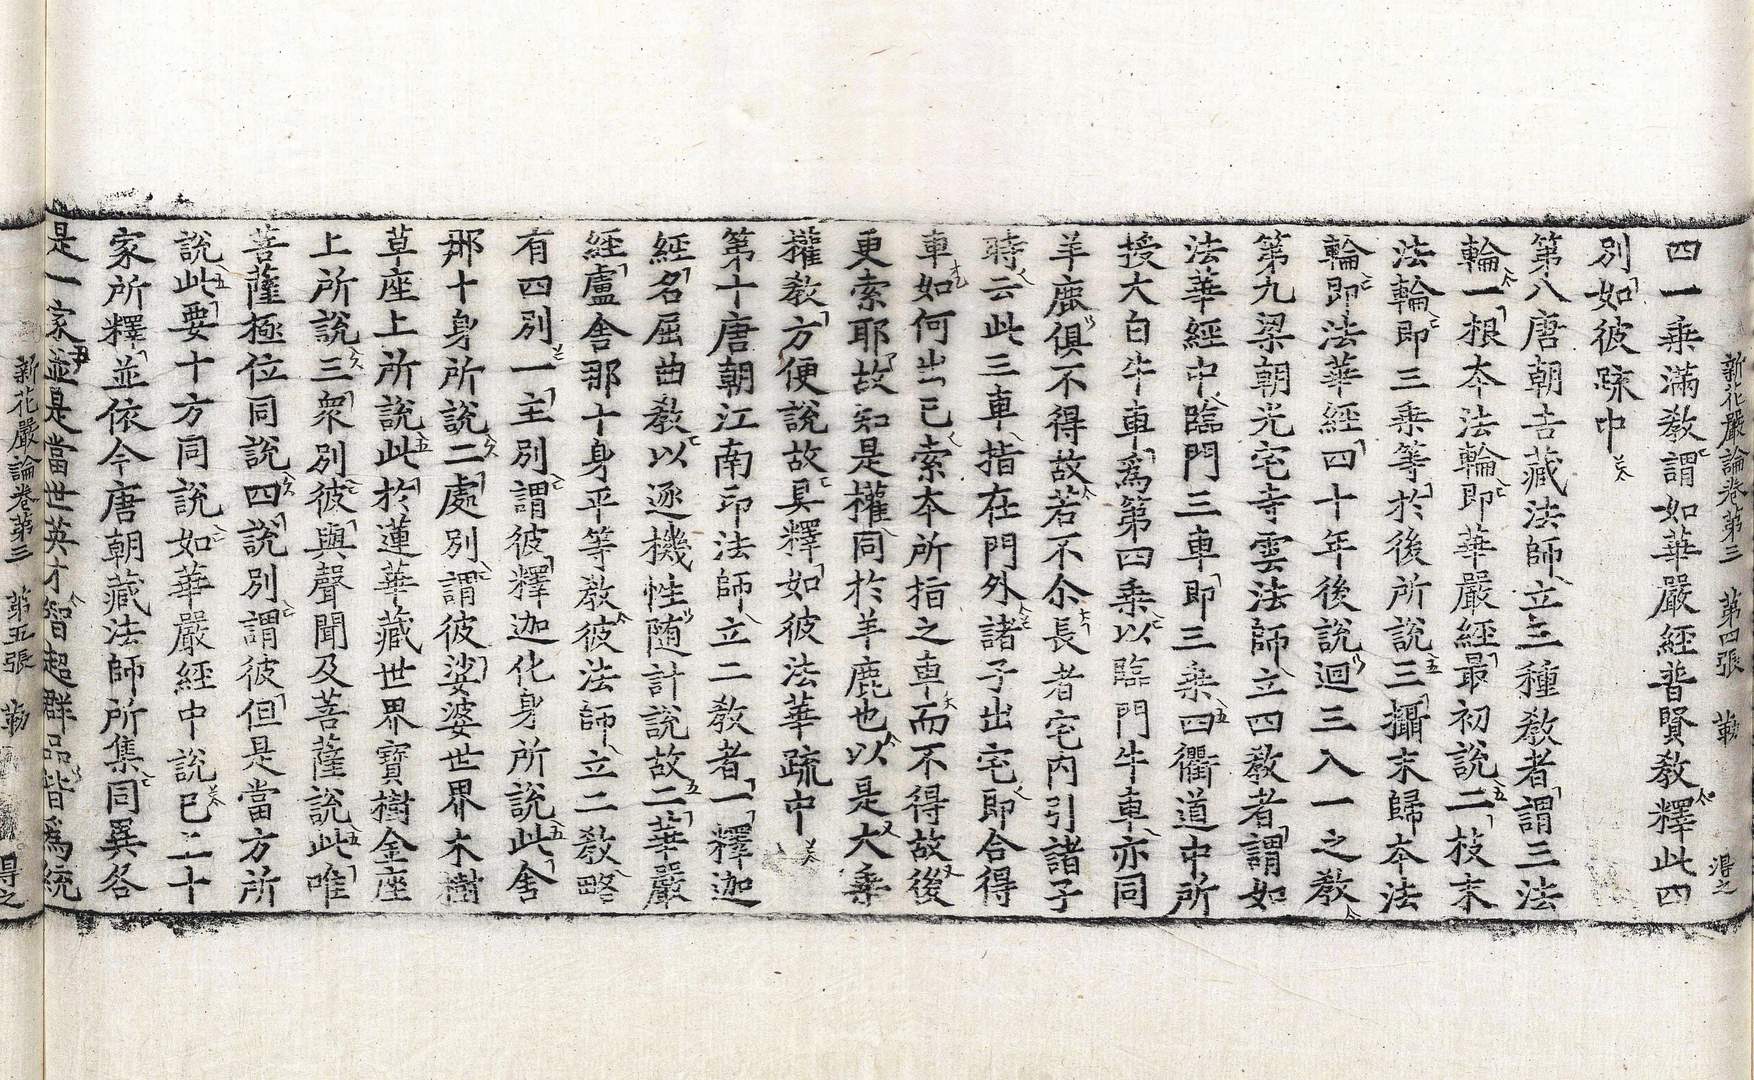 新花嚴論卷第三 第四張 勒 得之
四一乘滿教謂如華嚴經普賢教釋此四
別如彼疏中
第八唐朝吉藏法師立三種教者謂三法
輪一根本法輪即華嚴經最初說二枝末
法輪即三乘等於後所說三攝末歸本法
輪即法華經四十年後說迴三入一之教
第九梁朝光宅寺雲法師立四教者謂如
法華經中臨門三車即三乘四衢道中所
授大白牛車爲第四乘以臨門牛車亦同
羊鹿俱不得故若不尒長者宅內引諸子
時云此三車指在門外諸子出宅即合得
車如何出已索本所指之車而不得故後
更索耶故知是權同於羊鹿也以是大乘
權教方便說故具釋如彼法華疏中
第十唐朝江南印法師立二教者一釋迦
經名屈曲教以逐機性随計說故二華嚴
經盧舍那十身平等教彼法師立二教略
有四別一主別謂彼釋迦化身所說此舍
那十身所說二處別謂彼娑婆世界木樹
草座上所說此於蓮華藏世界寶樹金座
上所說三衆別彼與聲聞及菩薩說此唯
菩薩極位同說四說別謂彼但是當方所
說此要十方同說如華嚴經中說已上十
家所釋並依今唐朝藏法師所集同異各
是一家並是當世英才智超群品皆爲統
新花嚴論卷第三 第五張 勒 得之